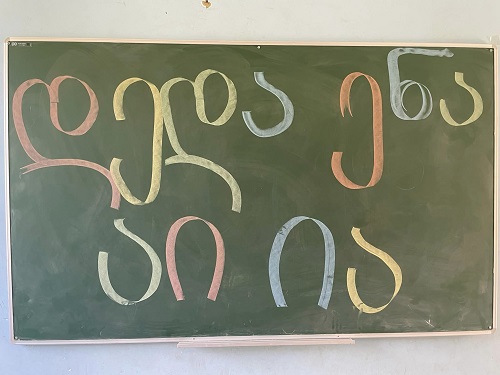 დედა ენა
აი ია